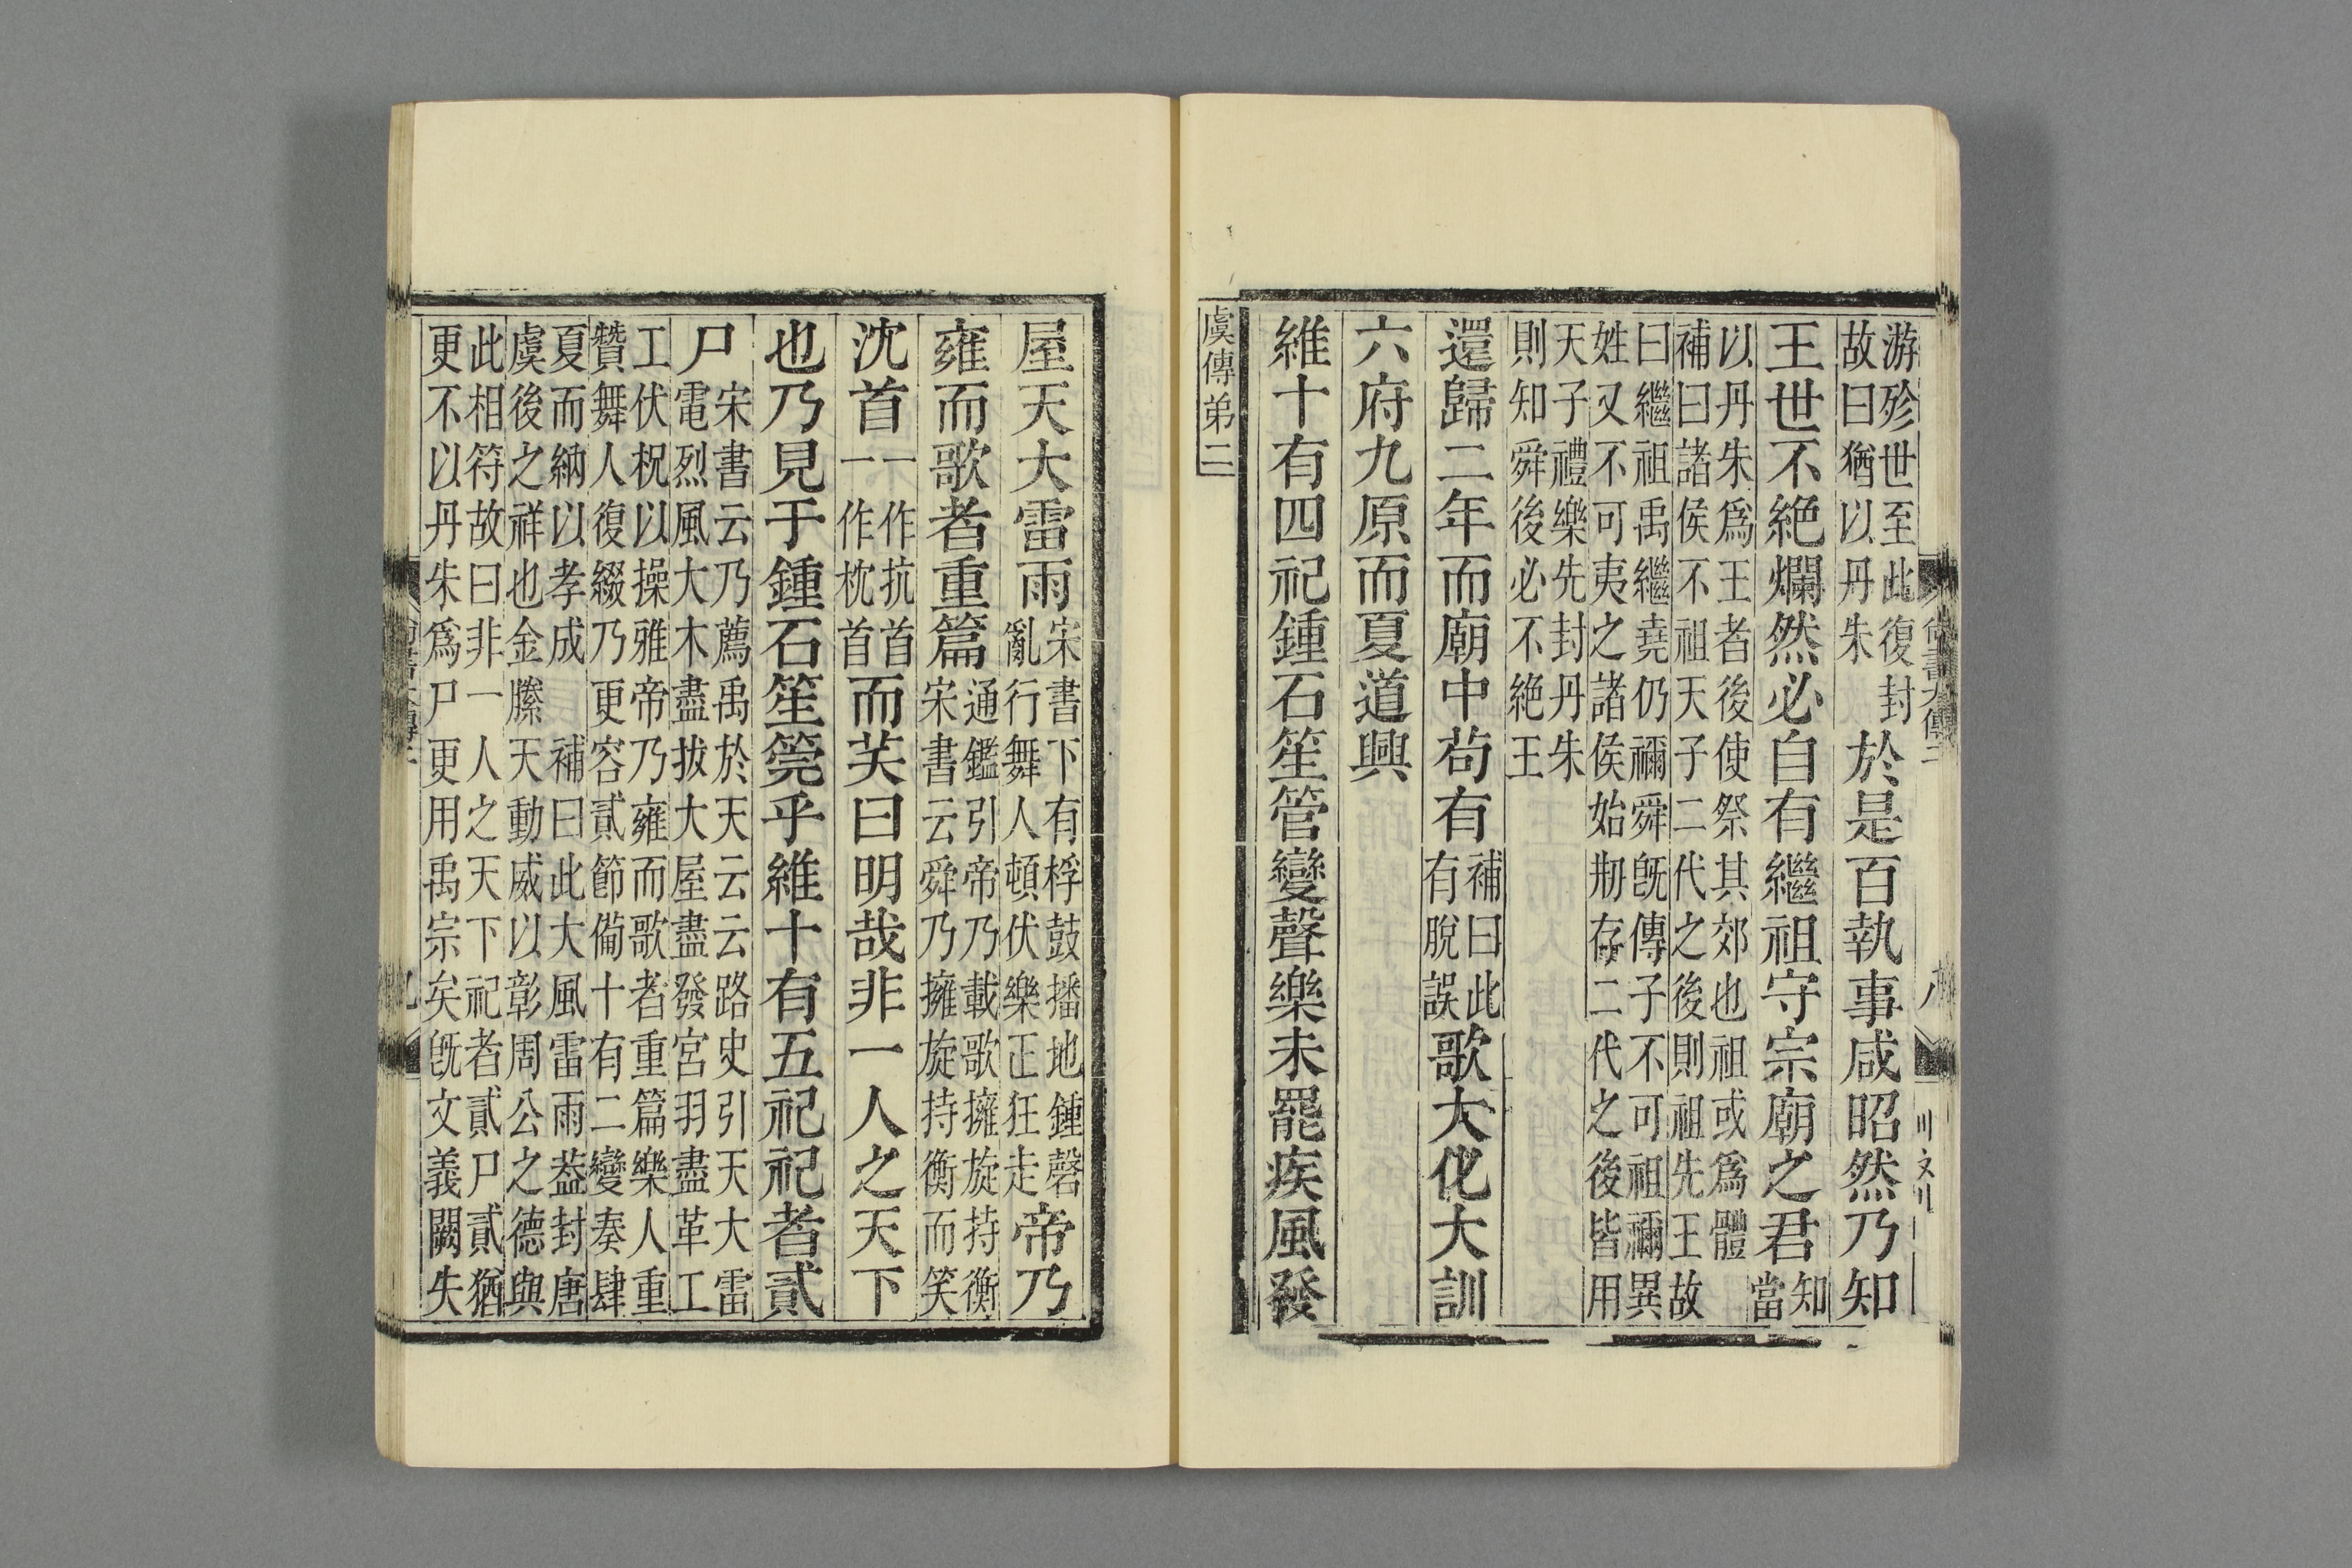 尚書大傳二
游殄世至此復封故曰猶以丹朱於是百執事咸昭然乃知
王世不絕爛然必自有繼祖守宗廟之君知當
以丹朱爲王者後使祭其郊也祖或爲體
補曰諸侯不祖天子二代之後則祖先王故
曰繼祖禹繼堯仍禰舜旣傳子不可祖禰異
姓又不可夷之諸侯始刱存二代之後皆用
天子禮樂先封丹朱
則知舜後必不絕王
還歸二年而廟中苟有補曰此有脫誤歌大化大訓
六府九原而夏道興
維十有四祀鍾石笙管變聲樂未罷疾風發
虞傳弟二
屋天大雷雨宋書下有桴鼓播地鍾磬亂行舞人頓伏樂正狂走帝乃
雍而歌者重篇通鑑引帝乃載歌擁旋持衡宋書云舜乃擁旋持衡而笑
沈首一作抗首一作枕首而芺曰明哉非一人之天下
也乃見于鍾石笙筦乎維十有五祀祀者貳
尸宋書云乃薦禹於天云云路史引天大雷電烈風大木盡拔大屋盡發宮羽盡革工
工伏柷以操雅帝乃雍而歌者重篇樂人重
贊舞人復綴乃更容貳節備十有二變奏肆
夏而納以孝成 補曰此大風雷雨葢封唐
虞後之祥也金縢天動威以彰周公之德與
此相符故曰非一人之天下祀者貳尸貳猶
更不以丹朱爲尸更用禹宗矣旣文義闕失